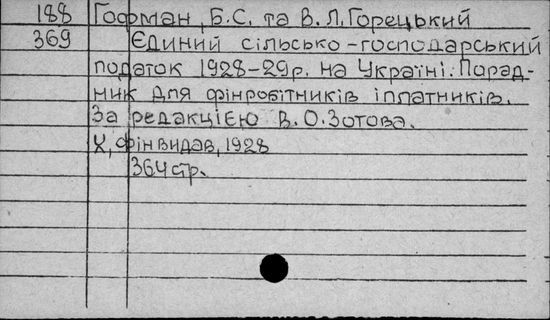 188 Гофман, Б.С. та В.Л.Горецький
369 Єдиний сільсько-господарський
податок 1928-29р. на Україні. Порад-
ник для фінробітників і платників.
За редакцією В.О.Зотова.
Х, Фінвидав, 1928
364 стр.